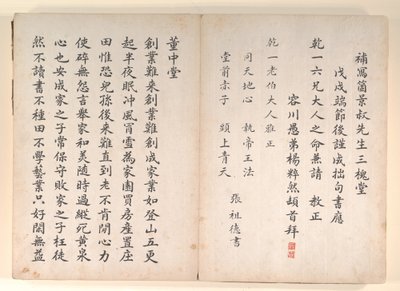 補寫箇景叔先生三槐堂
戊戌端節後謹成拙句書應
乾一六兄大人之命兼請 教正
容川愚弟楊粹然頓首拜
乾一老伯大人雅正
同天地心 執帝王法
堂前赤子 頭上青天
張祖德書
董中堂
創業難來創業難創成家業如登山五更
起半夜眠冲風冒雪為家園買房產置庄
田惟恐兒孫後來難直到老不肯閒心力
使碎無怨言舉家和美隨時過縱死黃泉
心也安成家之子常保守敗家之子枉徒
然不讀書不種田不學藝業只好閒無益